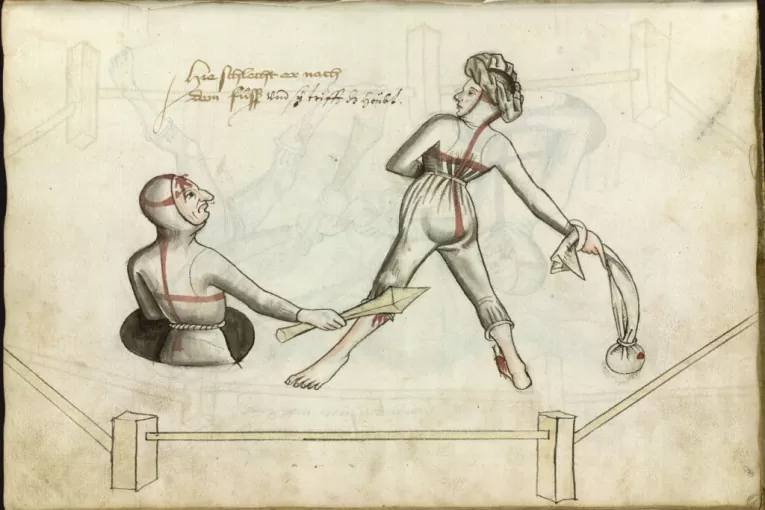 Hie schlecht er nach
dem fuss und sy triff dz houbt.